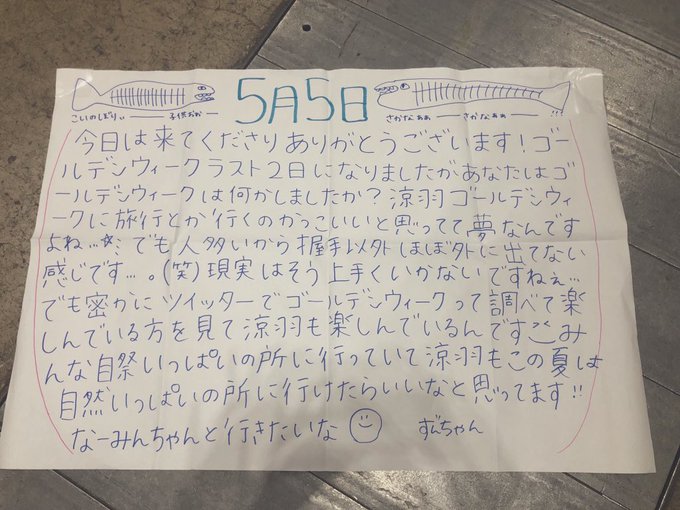 5月5日
こいのぼりぃぃ ── 子供おお ──
── さかなぁぁ ── さかなぁぁ ── !!!
今日は来てくださりありがとうございます!ゴー
ルデンウィークラスト2日になりましたがあなたはゴ
ールデンウィークは何かしましたか?涼羽ゴールデンウィ
ークに旅行とか行くのかっこいいと思ってて夢なんです
よね…☆:でも人多いから握手以外ほぼ外に出てない
感じです…。(笑)現実はそう上手くいかないですねぇ…
でも密かにツイッターでゴールデンウィークって調べて楽
しんでいる方を見て涼羽も楽しんでいるんです み
んな自祭いっぱいの所に行っていて涼羽もこの夏は
自然いっぱいの所に行けたらいいなと思ってます!!
なーみんちゃんと行きたいな
ずんちゃん